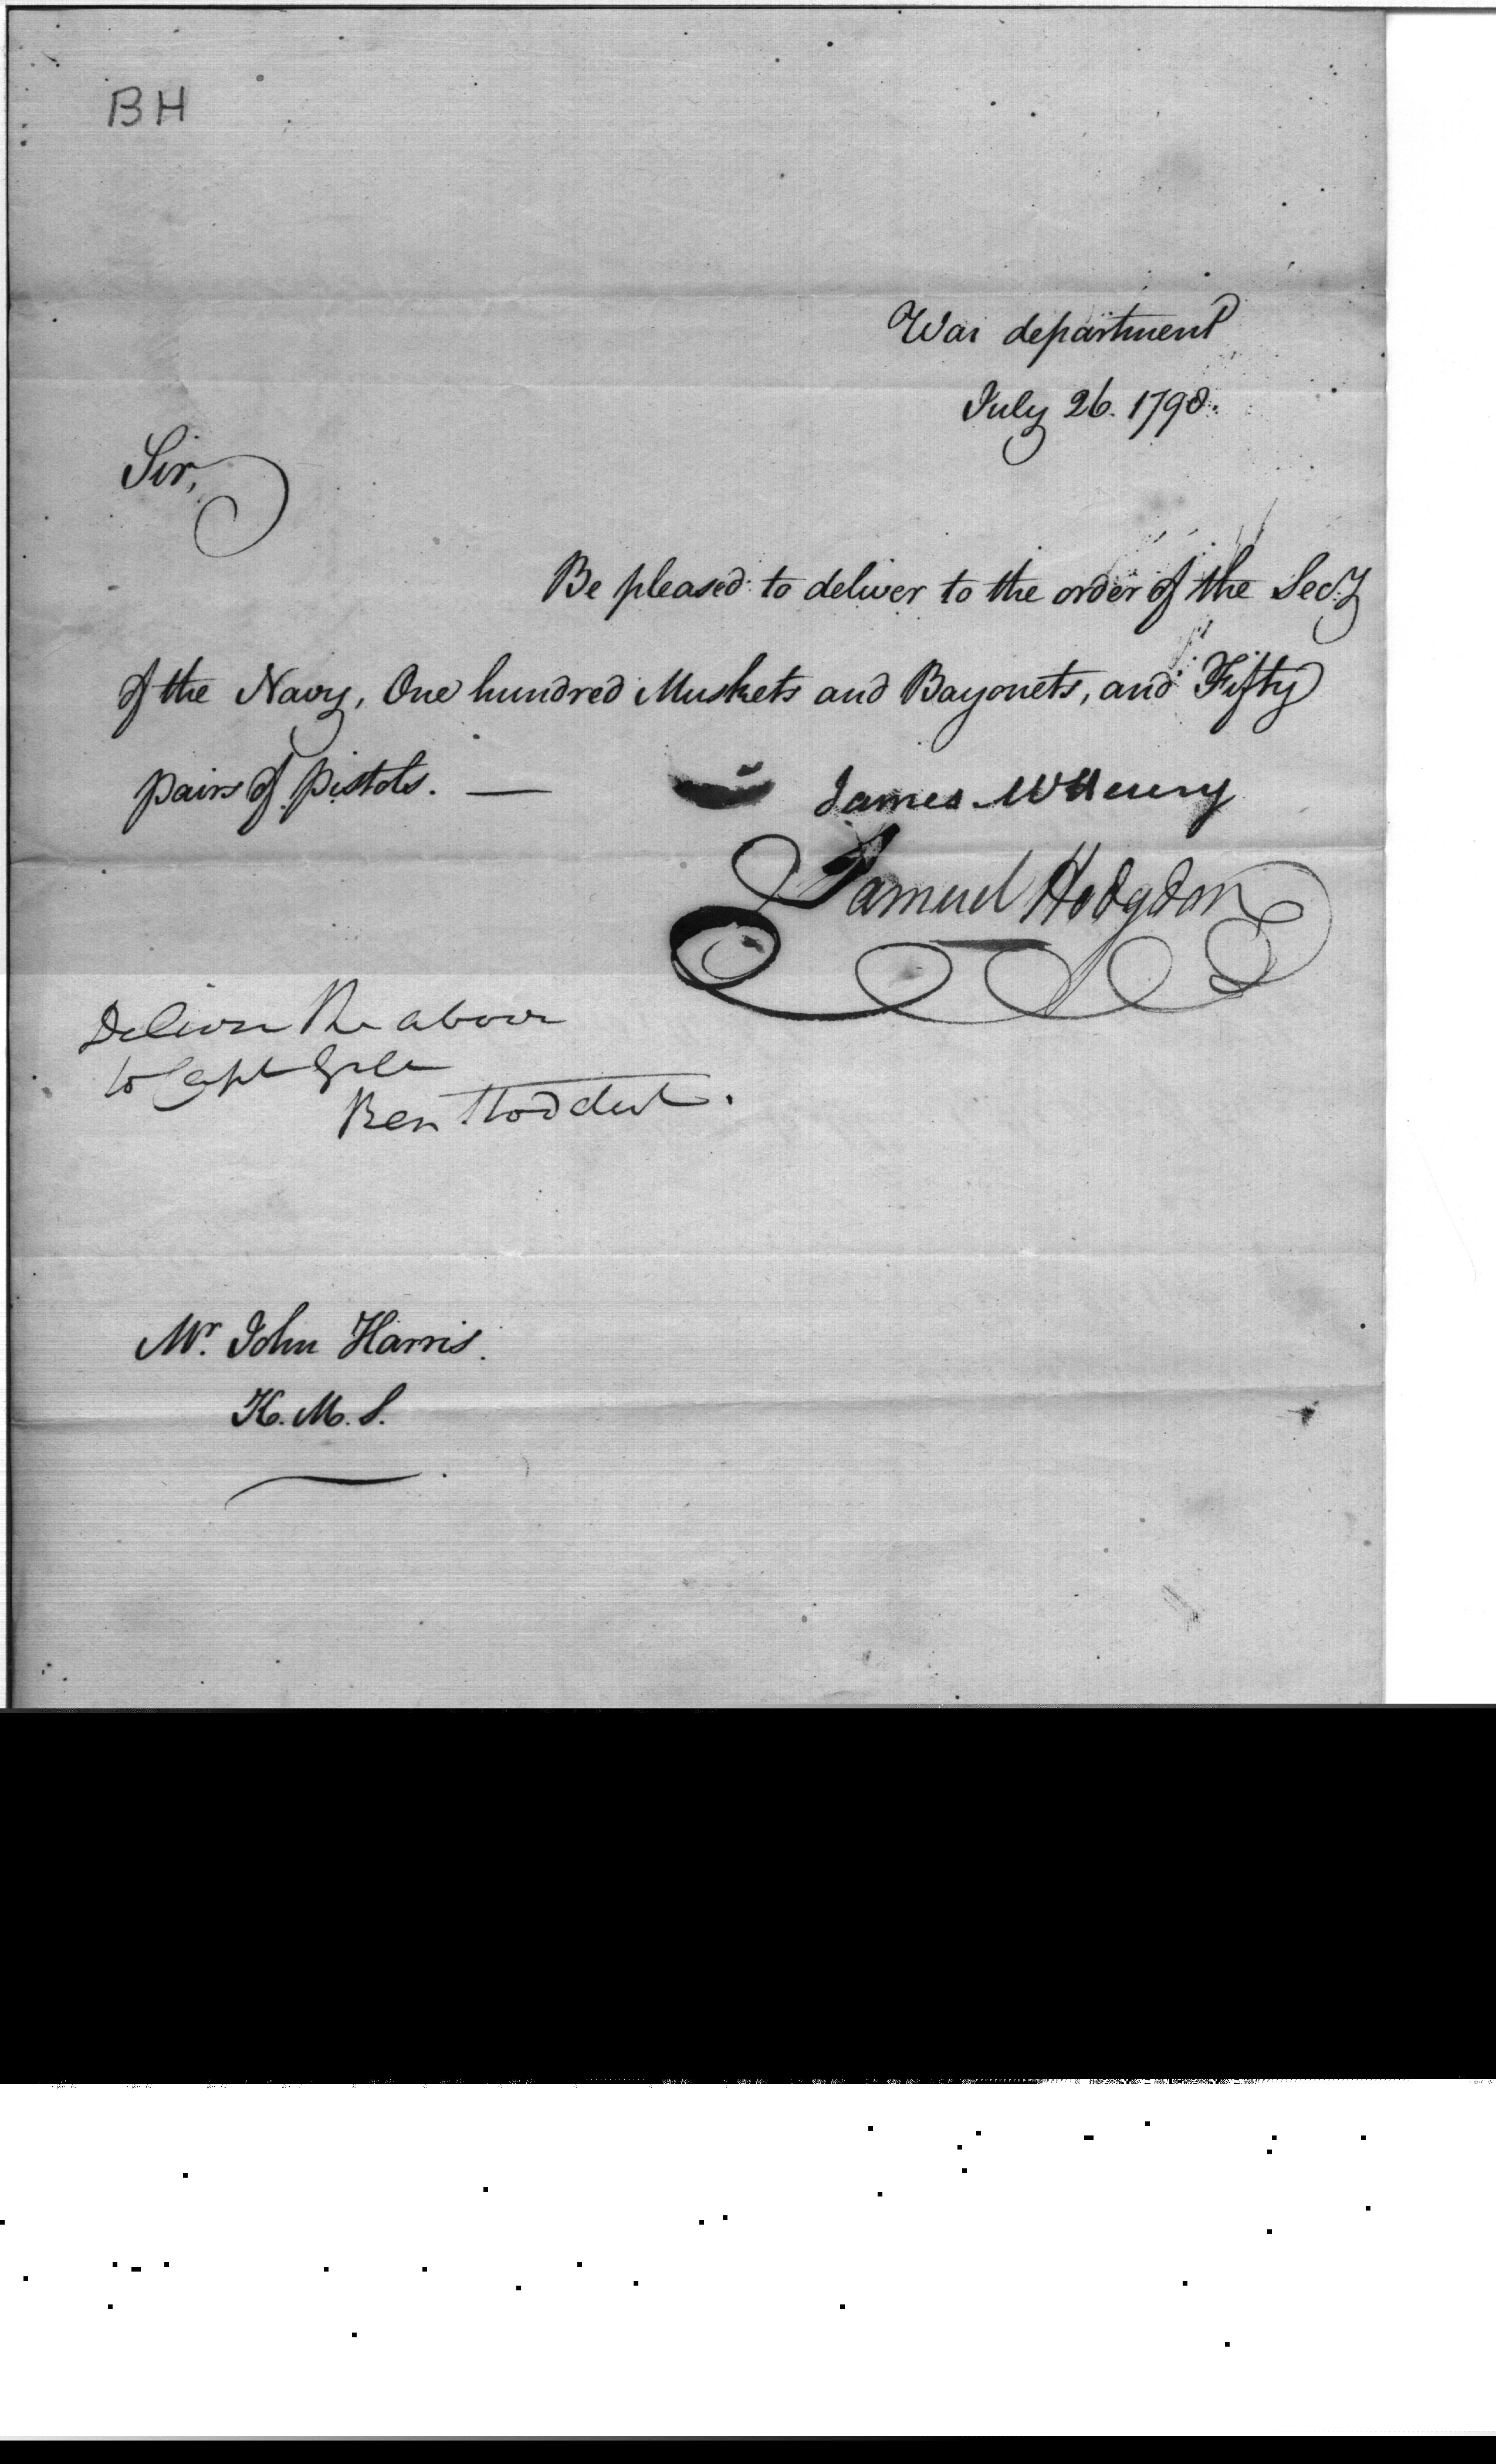 BH
War department
July 26. 1798.
Sir,
Be pleased to deliver to the order of the Secy
of the Navy, One hundred Muskets and Bayonets, and Fifty
pairs of Pistols. —
James McHenry
Samuel Hodgdon
Deliver the above
to Capt
Ben Stoddert.
Mr. John Harris.
K. M. S.